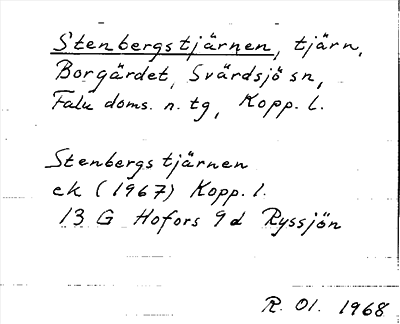 Stenbergstjärnen, tjärn,
Borgärdet, Svärdsjö sn,
Falu doms. n. tg, Kopp. l.
Stenbergstjärnen
ek (1967) Kopp. l.
13 G Hofors 9d Ryssjön
R. Ol. 1968